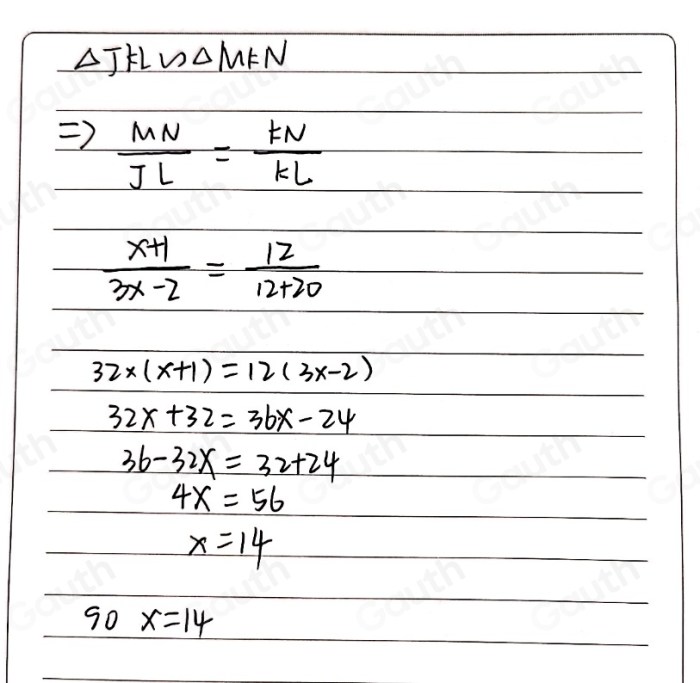 △JKL∽△MKN
=> MN/JL = KN/KL
x+1/3x-2 = 12/12+20
32×(x+1)=12(3x-2)
32x+32=36x-24
36-32x=32+24
4x=56
x=14
90 x=14
Gauth